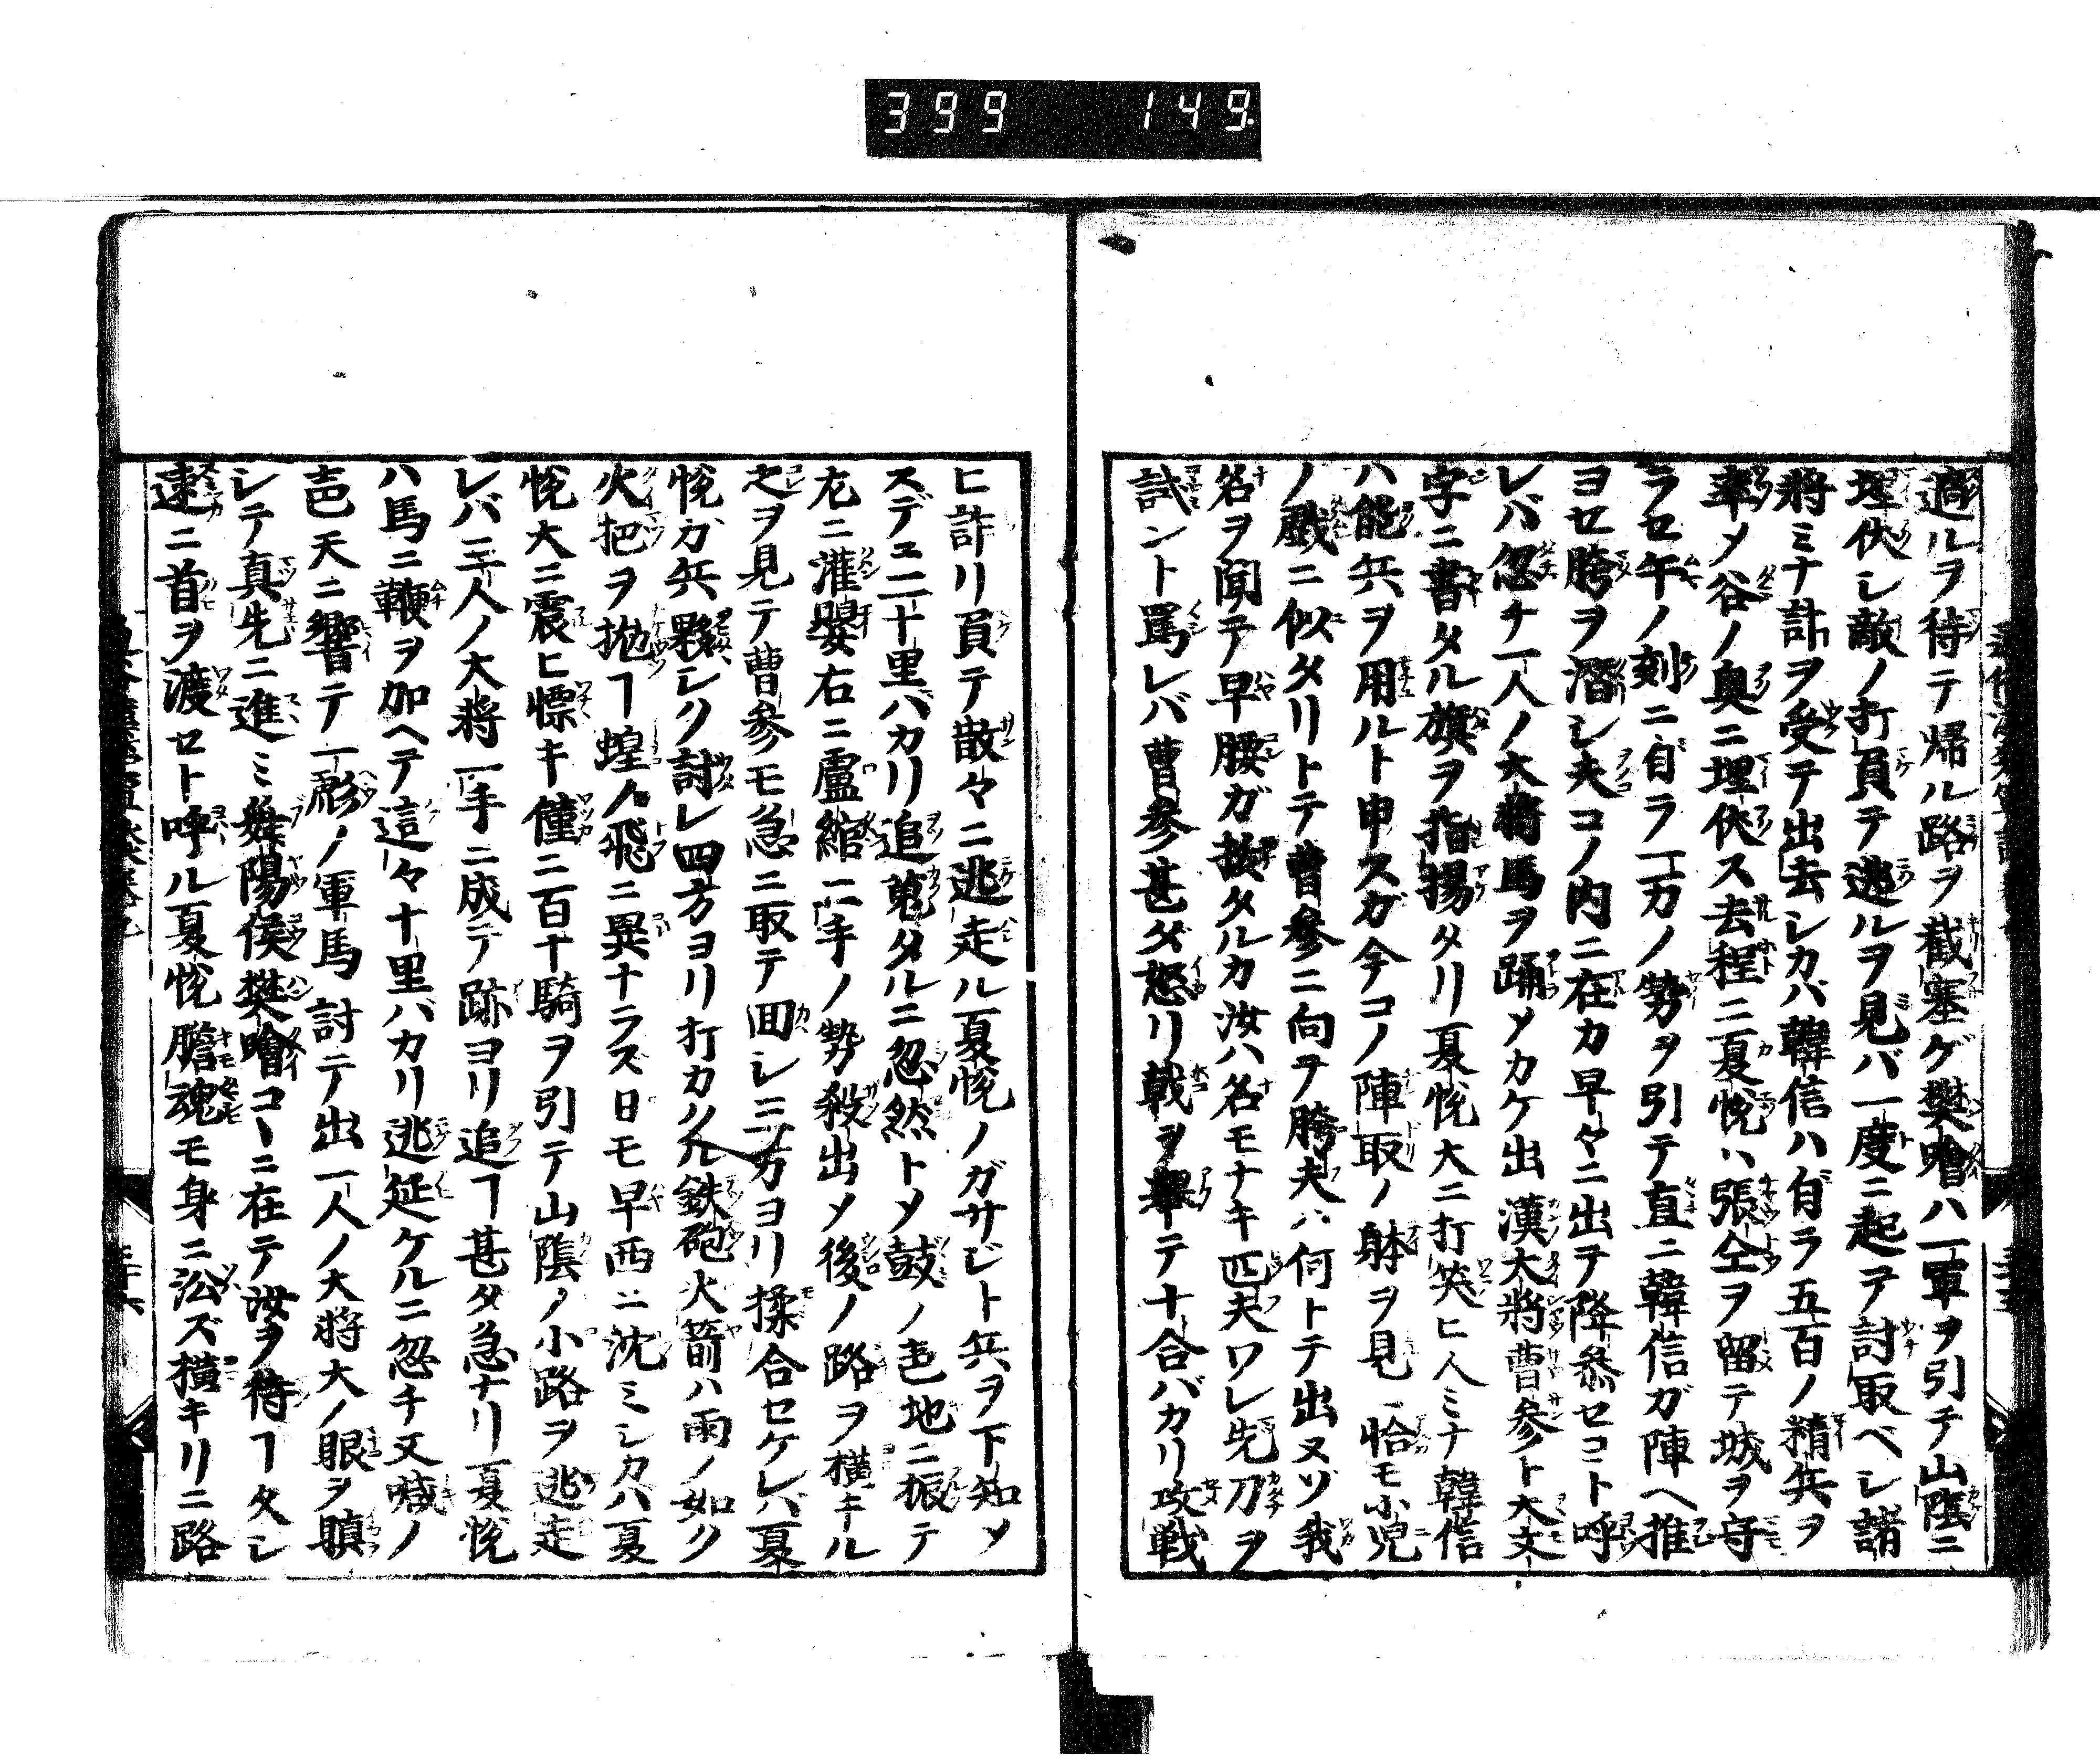 399 149
過ルヲ待テ帰ル路ヲ截塞ゲ樊噲ハ一軍ヲ引チ山陰ニ
埋伏シ敵ノ打負テ逃ルヲ見バ一度ニ起テ討取ベシ諸
將ミナ計ヲ受テ出去シカバ韓信ハ自ラ五百ノ精兵ヲ
率メ谷ノ奥ニ埋伏ス去程ニ夏悦ハ張仝ヲ留テ城ヲ守
ラセ午ノ刻ニ自ラ一万ノ勢ヲ引テ直ニ韓信ガ陣ヘ推
ヨセ胯ヲ潜シ夫コノ内ニ在カ早々ニ出テ降参セコト呼
レバ忽チ一人ノ大將馬ヲ踊メカケ出漢大將曹参ト大文
字ニ書タル旗ヲ指揚タリ夏悦大ニ打笑ヒ人ミナ韓信
ハ能兵ヲ用ルト申スガ今コノ陣取ノ躰ヲ見ニ恰モ小児
ノ戯ニ似タリトテ曹参ニ向テ胯夫ハ何トテ出ヌゾ我
名ヲ聞テ早腰ガ抜タルカ汝ハ名モナキ匹夫ワレ先刀ヲ
試ント罵レバ曹参甚ダ怒リ戟ヲ挙テ十合バカリ攻戦
ヒ詐リ負テ散々ニ逃走ル夏悦ノガサジト兵ヲ下知メ
スデニ二十里バカリ追蒐タルニ忽然トメ鼓ノ声地ニ振テ
左ニ灌嬰右ニ盧綰二手ノ勢殺出メ後ノ路ヲ横キル
之ヲ見テ曹参モ急ニ取テ囬シ三方ヨリ揉合セケレバ夏
悦ガ兵夥シク討レ四方ヨリ打カクル鉄砲火箭ハ雨ノ如ク
火把ヲ抛ヿ蝗ノ飛ニ異ナラズ日モ早西ニ沈ミシカバ夏
悦大ニ震ヒ慄キ僅ニ百十騎ヲ引テ山陰ノ小路ヲ逃走
レバ三人ノ大將一手ニ成テ跡ヨリ追ヿ甚タ急ナリ夏悦
ハ馬ニ鞭ヲ加ヘテ這々十里バカリ逃延ケルニ忽チ又喊ノ
声天ニ響テ一彪ノ軍馬討テ出一人ノ大將大ノ眼ヲ瞋
シテ真先ニ進ミ舞陽侯樊噲コヽニ在テ汝ヲ待ヿ久シ
速ニ首ヲ渡セト呼ル夏悦膽魂モ身ニ沿ズ横キリニ路